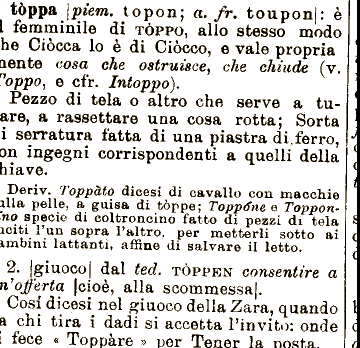 tòppa |piem. topon; a. fr. toupon|: è
l femminile di TÒPPO, allo stesso modo
he Ciòcca lo è di Ciòcco, e vale propria
nente cosa che ostruisce, che chiude (v.
Toppo, e cfr. Intoppo).
Pezzo di tela o altro che serve a tu-
are, a rassettare una cosa rotta; Sorta
i serratura fatta di una piastra di ferro,
on ingegni corrispondenti a quelli della
hiave.
Deriv. Toppàto dicesi di cavallo con macchie
ulla pelle, a guisa di tòppe; Toppóne e Toppon-
íno specie di coltroncino fatto di pezzi di tela
uciti l'un sopra l'altro, per metterli sotto ai
ambini lattanti, affine di salvare il letto.
2. |giuoco| dal ted. TÒPPEN consentire a
n'offerta |cioè, alla scommessa|.
Cosí dicesi nel giuoco della Zara, quando
a chi tira i dadi si accetta l'invito: onde
i fece « Toppàre » per Tener la posta.